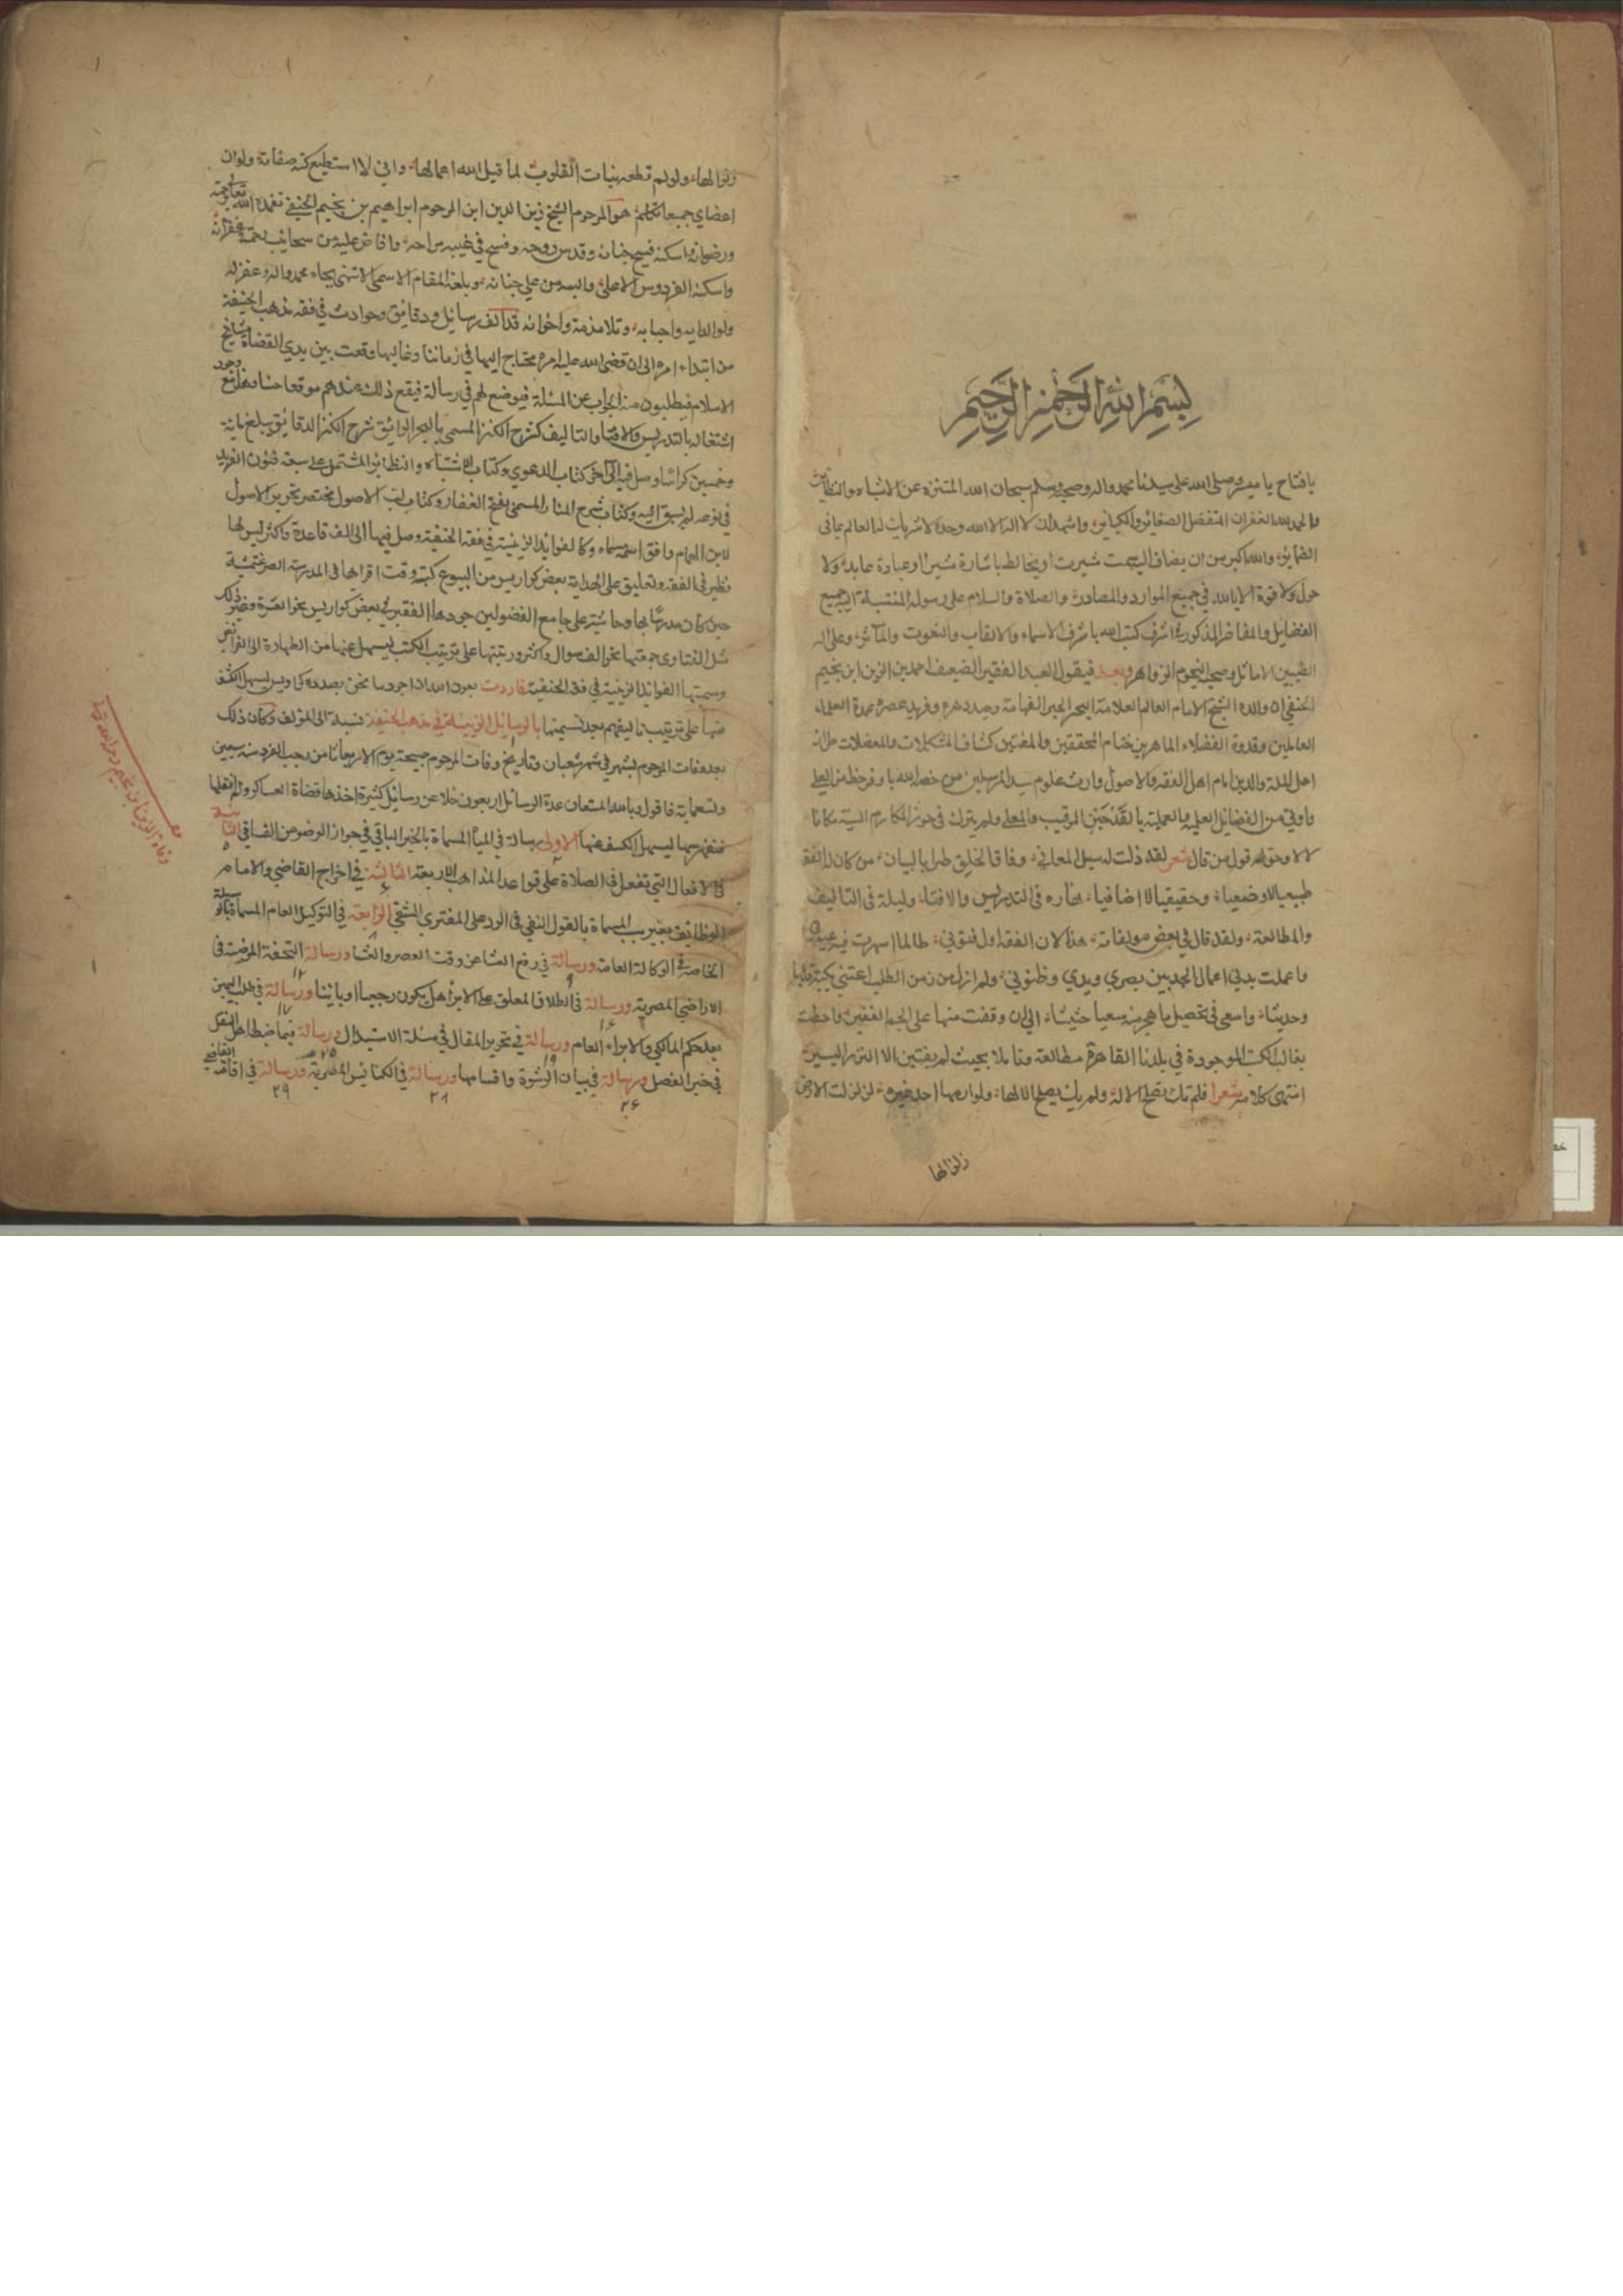 بسم الله الرحمن الرحيم
يا فتاح يا ميسر وصلى الله على سيدنا محمد واله وصحبه وسلم سبحان الله المتنزه عن الاشباه والنظاير
والحمد لله الغفران المتفضل الصغائر والكبائر واشهد ان لا اله الا الله وحده لا شريك له العالم بما فى
الضماير والله اكبر من ان يضاف اليه سمت شيريت او يخالط باشارة مشير او عبادة عابد ولا
حول ولا قوة الا بالله في جميع الموارد والمصادر والصلاة والسلام على رسوله المنتسبة اليه جميع
الفضايل والمفاخر المذكور في اشرف كتب الله باشرف الاسماء والالقاب والنعوت والمآثر وعلى اله
الطيبين الاماثل وصحبه النجوم الزواهر وبعد فيقول العبد الفقير الضعيف احمد بن الزين ابن نجيم
الحنفي ان والده الشيخ الامام العالم العلامة البحر الحبر الفهامة وحيد دهره وفريد عصره عمدة العلماء
العاملين وقدوة الفضلاء الماهرين ختام المحققين والمفتين كشاف المشكلات والمعضلات طراز
اهل الملة والدين امام اهل الفقه والاصول وارث علوم سيد المرسلين من خصه الله باوفر حظ من العلي
واوتي من الفضائل العلمية والعملية بالقدحين الرقيب والمعلى ولم يترك في حوز المكارم السنية مكانا
لالا وحق له قول من قال شعر لقد ذلت له سبل المعاني وفاق الخلق طرا بالبيان من كان له الفقه
طبيعيا لا وضعيا وحقيقيا لا اضافيا نهاره فى التدريس والافتاء وليله فى التاليف
والمطالعة ولقد قال في بعض مولفاته هذا لان الفقه اول فنوني طالما اسهرت فيه عيوني
واعملت بدني اعمال الجد بين بصري ويدي وظنوني ولم ازل من زمن الطلب اعتني بكتبه قديما
وحديثا واسعى في تحصيل ما هجر منه سعيا حثيثا الى ان وقفت منها على الجم الغفير واحطت
بغالب الكتب الموجودة في بلدنا القاهرة مطالعة وتاملا بحيث لم يفتني الا النزر اليسير
انتهى كلامه شعرا فلم تك تصلح الا له ولم يك يصلح الا لها ولو ارامها احد غيره لزلزلت الارض
زلزالها
زلزالها ولو لم تطعه نيات القلوب لما قبل الله اعمالها واني لا استطيع كنه صفاته ولو ان
اعضاي جميعا تتكلم هو المرحوم الشيخ زين الدين ابن المرحوم ابراهيم بن نجيم الحنفي تغمده الله تعالى برحمته
ورضوانه واسكنه فسيح جنانه وقدس روحه وفسح في غيبه براحه وافاض عليه من سحائب رحمته غفرانه
واسكنه الفردوس الاعلى والبسه من علي جنانه وبلغه المقام الاسمى الاسنى بجاه محمد واله وغفر له
ولوالديه واحبابه وتلامذته واخوانه قد الف رسائل ودقائق وحوادث في فقه مذهب الحنيفة
من ابتداء امره الى ان قضى الله عليه امره محتاج اليها في زماننا وغالبها وقعت بين يدي القضاة ومشايخ
الاسلام فيطلبون منه الجواب عن المسئلة فيوضع لهم في رسالة فيقع ذلك عندهم موقعا حسنا وجود هذا مع
اشتغاله بالتدريس والافتا والتاليف كشرح الكنز المسمى بالبحر الرائق شرح الكنز الدقائق وبلغ ماية
وخمسين كراسا وصل فيه الى آخر كتاب الدعوي وكتاب الاشباه والنظائر المشتمل على سبعة فنون الفريد
في نوعه لم يسبق اليه وكتاب شرح المنار المسمى بفتح الغفار وكتاب لب الاصول مختصر تحرير الاصول
لابن الهمام وافق اسمه مسماه وكالفوايد الزينية في فقه الحنفية وصل فيها الى الف قاعدة واكثر ليس لها
نظير في الفقه وتعليق على الهداية بعض كراريس من البيوع كتبه وقت اقراها في المدرسة الصرغتمشية
حين كان مدرسا بها وحاشية على جامع الفصولين جردها الفقير في بعض كواريس نحو العشرة وغير ذلك
مثل الفتاوى جمعتها نحو الف سوال واكثر ورتبتها على ترتيب الكتب ليسهل عنها من الطهارة الى الفرائض
وسميتها الفوائد الزينية في فقه الحنفية فاردت بعون الله ان اجرد ما نحن بصدده كما ويس ليسهل الكشف
منها على ترتيب تاليفهم بعد تسميتها بالرسائل الزينية في مذهب الحنيفة نسبة الى المؤلف وكان ذلك
بعد وفات المرحوم بشهر في شهر شعبان وتاريخ وفات المرحوم صبيحة يوم الاربعا ثامن رجب الفرد سنه سبعين
وتسعماية فاقول وبالله المستعان عدة الرسائل اربعون خلا عن رسائل كثيرة اخذها قضاة العساكر ولم انقلها
فنفهرسها ليسهل الكشف عنها الاولى رسالة في المياه المسماة بالخير الباقي في جواز الوضو من الفساقي الثانية
في الافعال التي تفعل في الصلاة على قواعد المذاهب الاربعة الثالثة في اخراج القاضي والامام
الوظائف بغير سبب المسماة بالقول النقي فى الرد على المفتري الشقي الرابعة في التوكيل العام المسماة بالوسيلة
الخاصة في الوكالة العامة ورسالة في رفع الغشا عن وقت العصر والعشا ورسالة التحفة المرضية فى
الاراضي المصرية ورسالة في الطلاق المعلق على الابراء هل يكون رجعيا او باينا ورسالة في طلب اليمين
بعد حكم المالكي والابراء العام ورسالة في تحرير المقال في مسئلة الاستبدال ورسالة فيما ضبط اهل النقل
في خبر الفصل ورسالة في بيان الرشوة واقسامها ورسالة في الكنائس المصرية ورسالة في اقامة القاضي
٢٦ ٢٨ ٢٩
وفاة الزين ابن نجيم رحمه الله تعالى